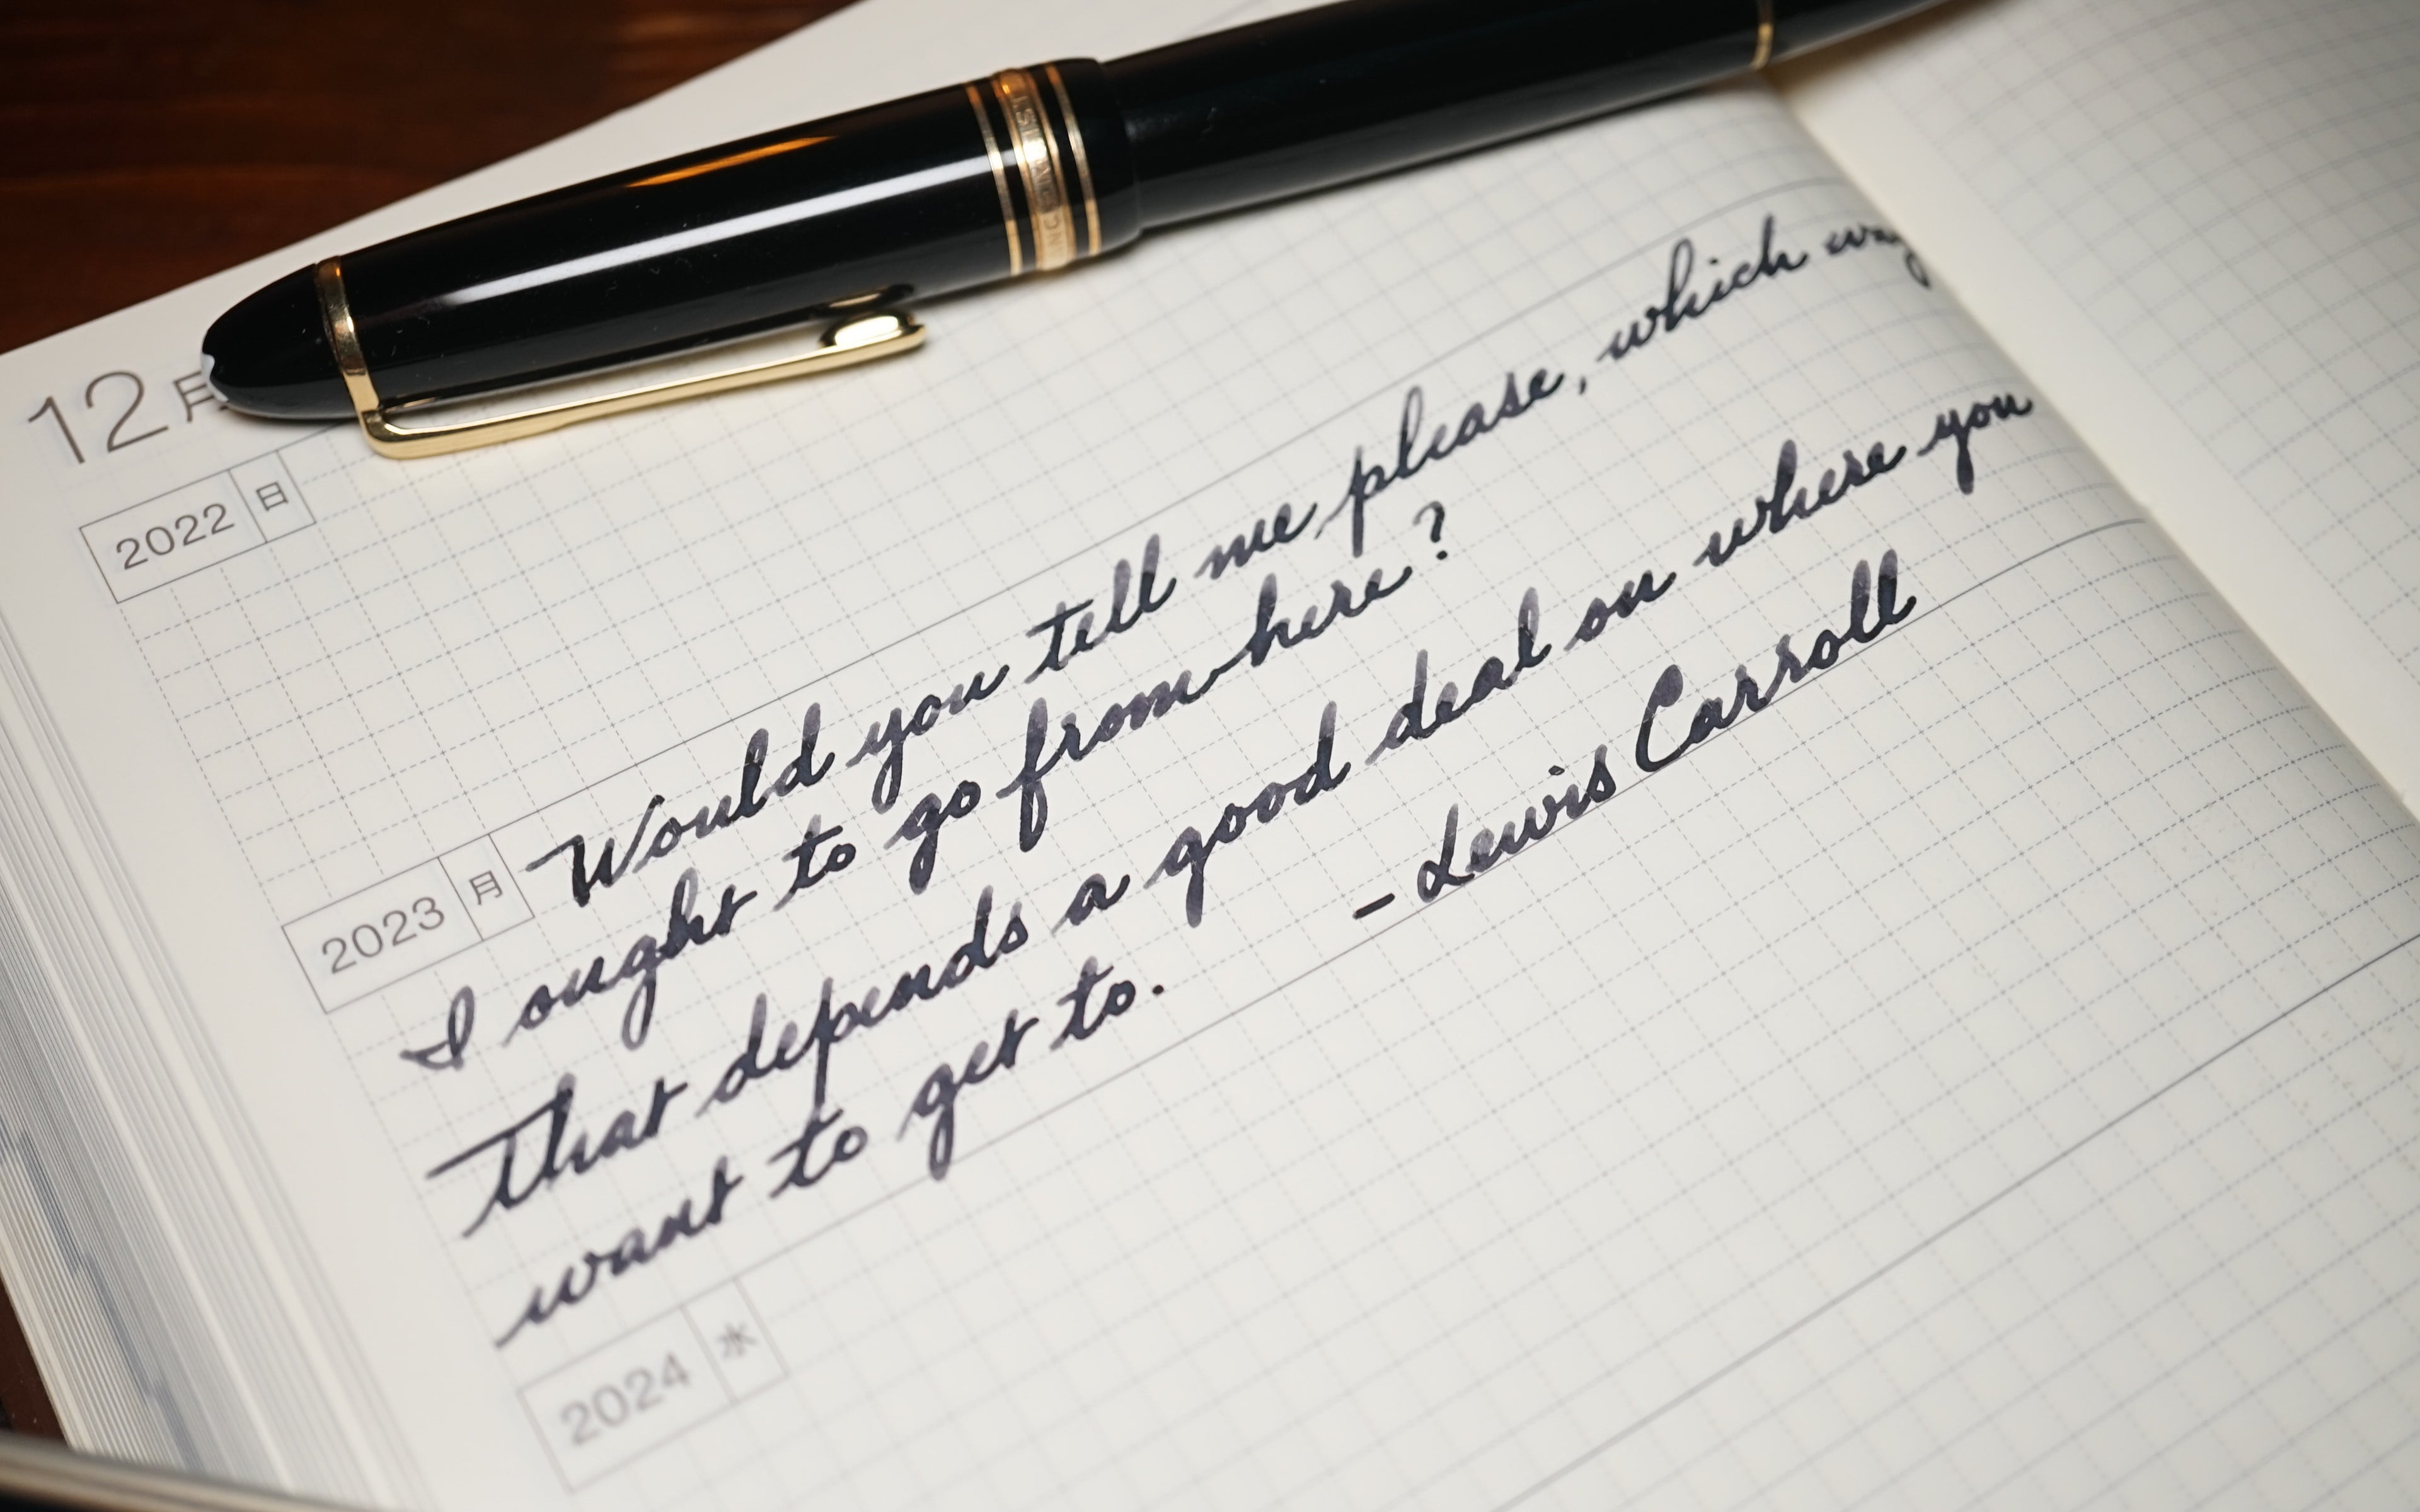 12月
2022 日
2023 月 Would you tell me please, which way
I ought to go from here?
That depends a good deal on where you
want to get to. - Lewis Carroll
2024 水